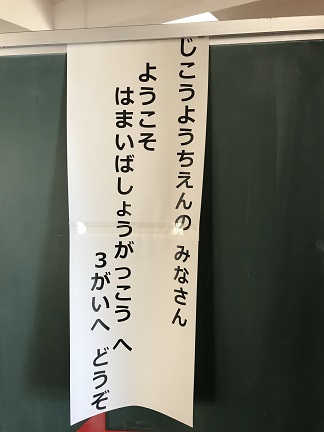 じこうようちえんの みなさん
ようこそ
はまいばしょうがっこう へ
3がいへ どうぞ